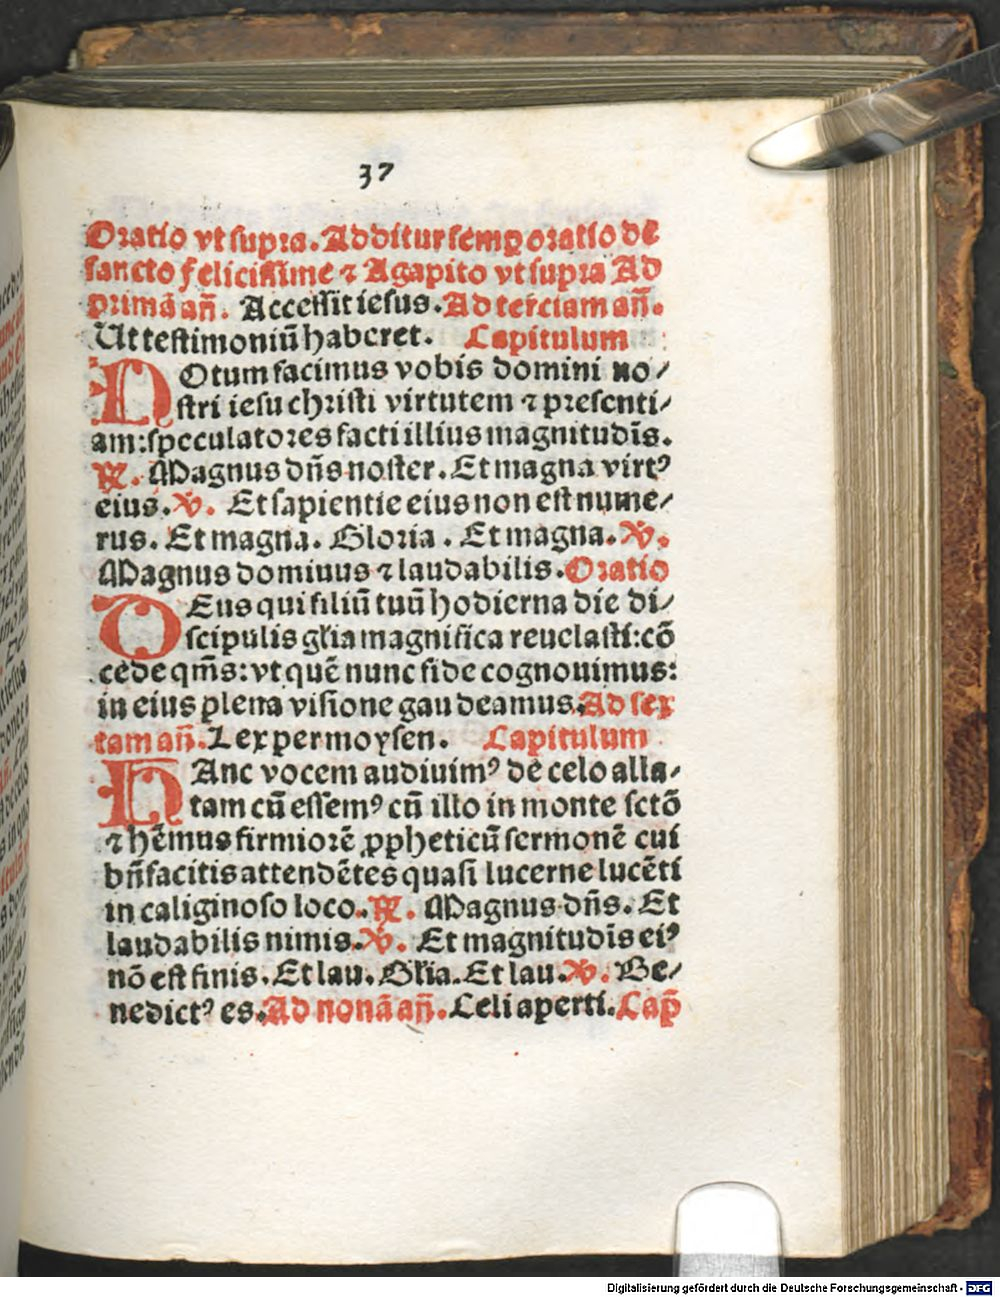 37
Oratio vt supra. Additur semꝑ oratio de
sancto felicissime ⁊ Agapito vt supra Ad
primā añ. Accessit iesus. Ad terciam añ.
Ut testimoniū haberet. Capitulum
NOtum facimus vobis domini no⸗
stri iesu christi virtutem ⁊ presenti⸗
am: speculatores facti illius magnitudīs.
℟. Magnus dñs noster. Et magna virtꝰ
eius. ℣. Et sapientie eius non est nume⸗
rus. Et magna. Gloria. Et magna. ℣.
Magnus domiuus ⁊ laudabilis. Oratio
DEus qui filiū tuū hodierna die di⸗
scipulis gl̓ia magnifica reuelasti: cō
cede qm̄s: vt quē nunc fide cognouimus:
in eius plena visione gaudeamus. Ad sex
tam añ. Lex per moysen. Capitulum
HAnc vocem audiuimꝰ de celo alla⸗
tam cū essemꝰ cū illo in monte sctō
⁊ hēmus firmiorē ꝓpheticū sermonē cui
bñ facitis attendētes quasi lucerne lucēti
in caliginoso loco. ℟. Magnus dñs. Et
laudabilis nimis. ℣. Et magnitudīs eiꝰ
nō est finis. Et lau. Gl̓ia. Et lau. ℣. Be⸗
nedictꝰ es. Ad nonā añ. Celi aperti. Cap̄
Digitalisierung gefördert durch die Deutsche Forschungsgemeinschaft - DFG